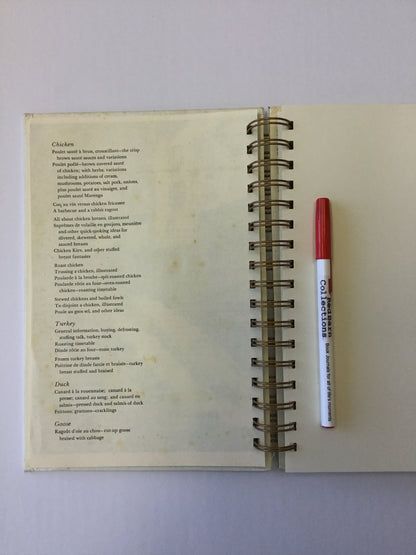 Chicken
Poulet sauté à brun, croustillant—the crisp
brown sauté sauces and variations
Poulet poêlé—brown covered sauté
of chicken; with herbs, variations
including additions of cream,
mushrooms, potatoes, salt pork, onions,
plus poulet sauté au vinaigre, and
poulet sauté Marengo
Coq au vin versus chicken fricassee
A barbecue and a rabbit ragout
All about chicken breasts, illustrated
Suprêmes de volaille en goujons, meunière
and other quick-cooking ideas for
slivered, skewered, whole, and
sauced breasts
Chicken Kiev, and other stuffed
breast fantasies
Roast chicken
Trussing a chicken, illustrated
Poularde à la broche—spit-roasted chicken
Poularde rôtie au four—oven-roasted
chicken—roasting timetable
Stewed chickens and boiled fowls
To disjoint a chicken, illustrated
Poule au gros sel, and other ideas
Turkey
General information, buying, defrosting,
stuffing talk, turkey stock
Roasting timetable
Dinde rôtie au four—roast turkey
Frozen turkey breasts
Poitrine de dinde farcie et braisée—turkey
breast stuffed and braised
Duck
Canard à la rouennaise; canard à la
presse; canard au sang; and canard en
salmis—pressed duck and salmis of duck
Frittons; grattons—cracklings
Goose
Ragoût d'oie au chou—cut-up goose
braised with cabbage
Collections
Book Journals for all of life's moments